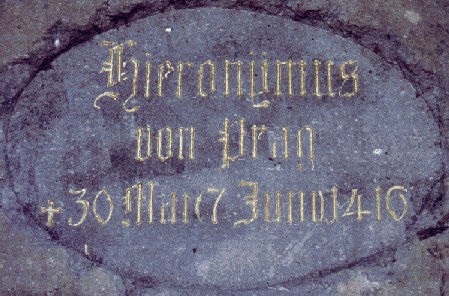 Hieronymus
von Prag
+30 Mai(7 Juni)1416